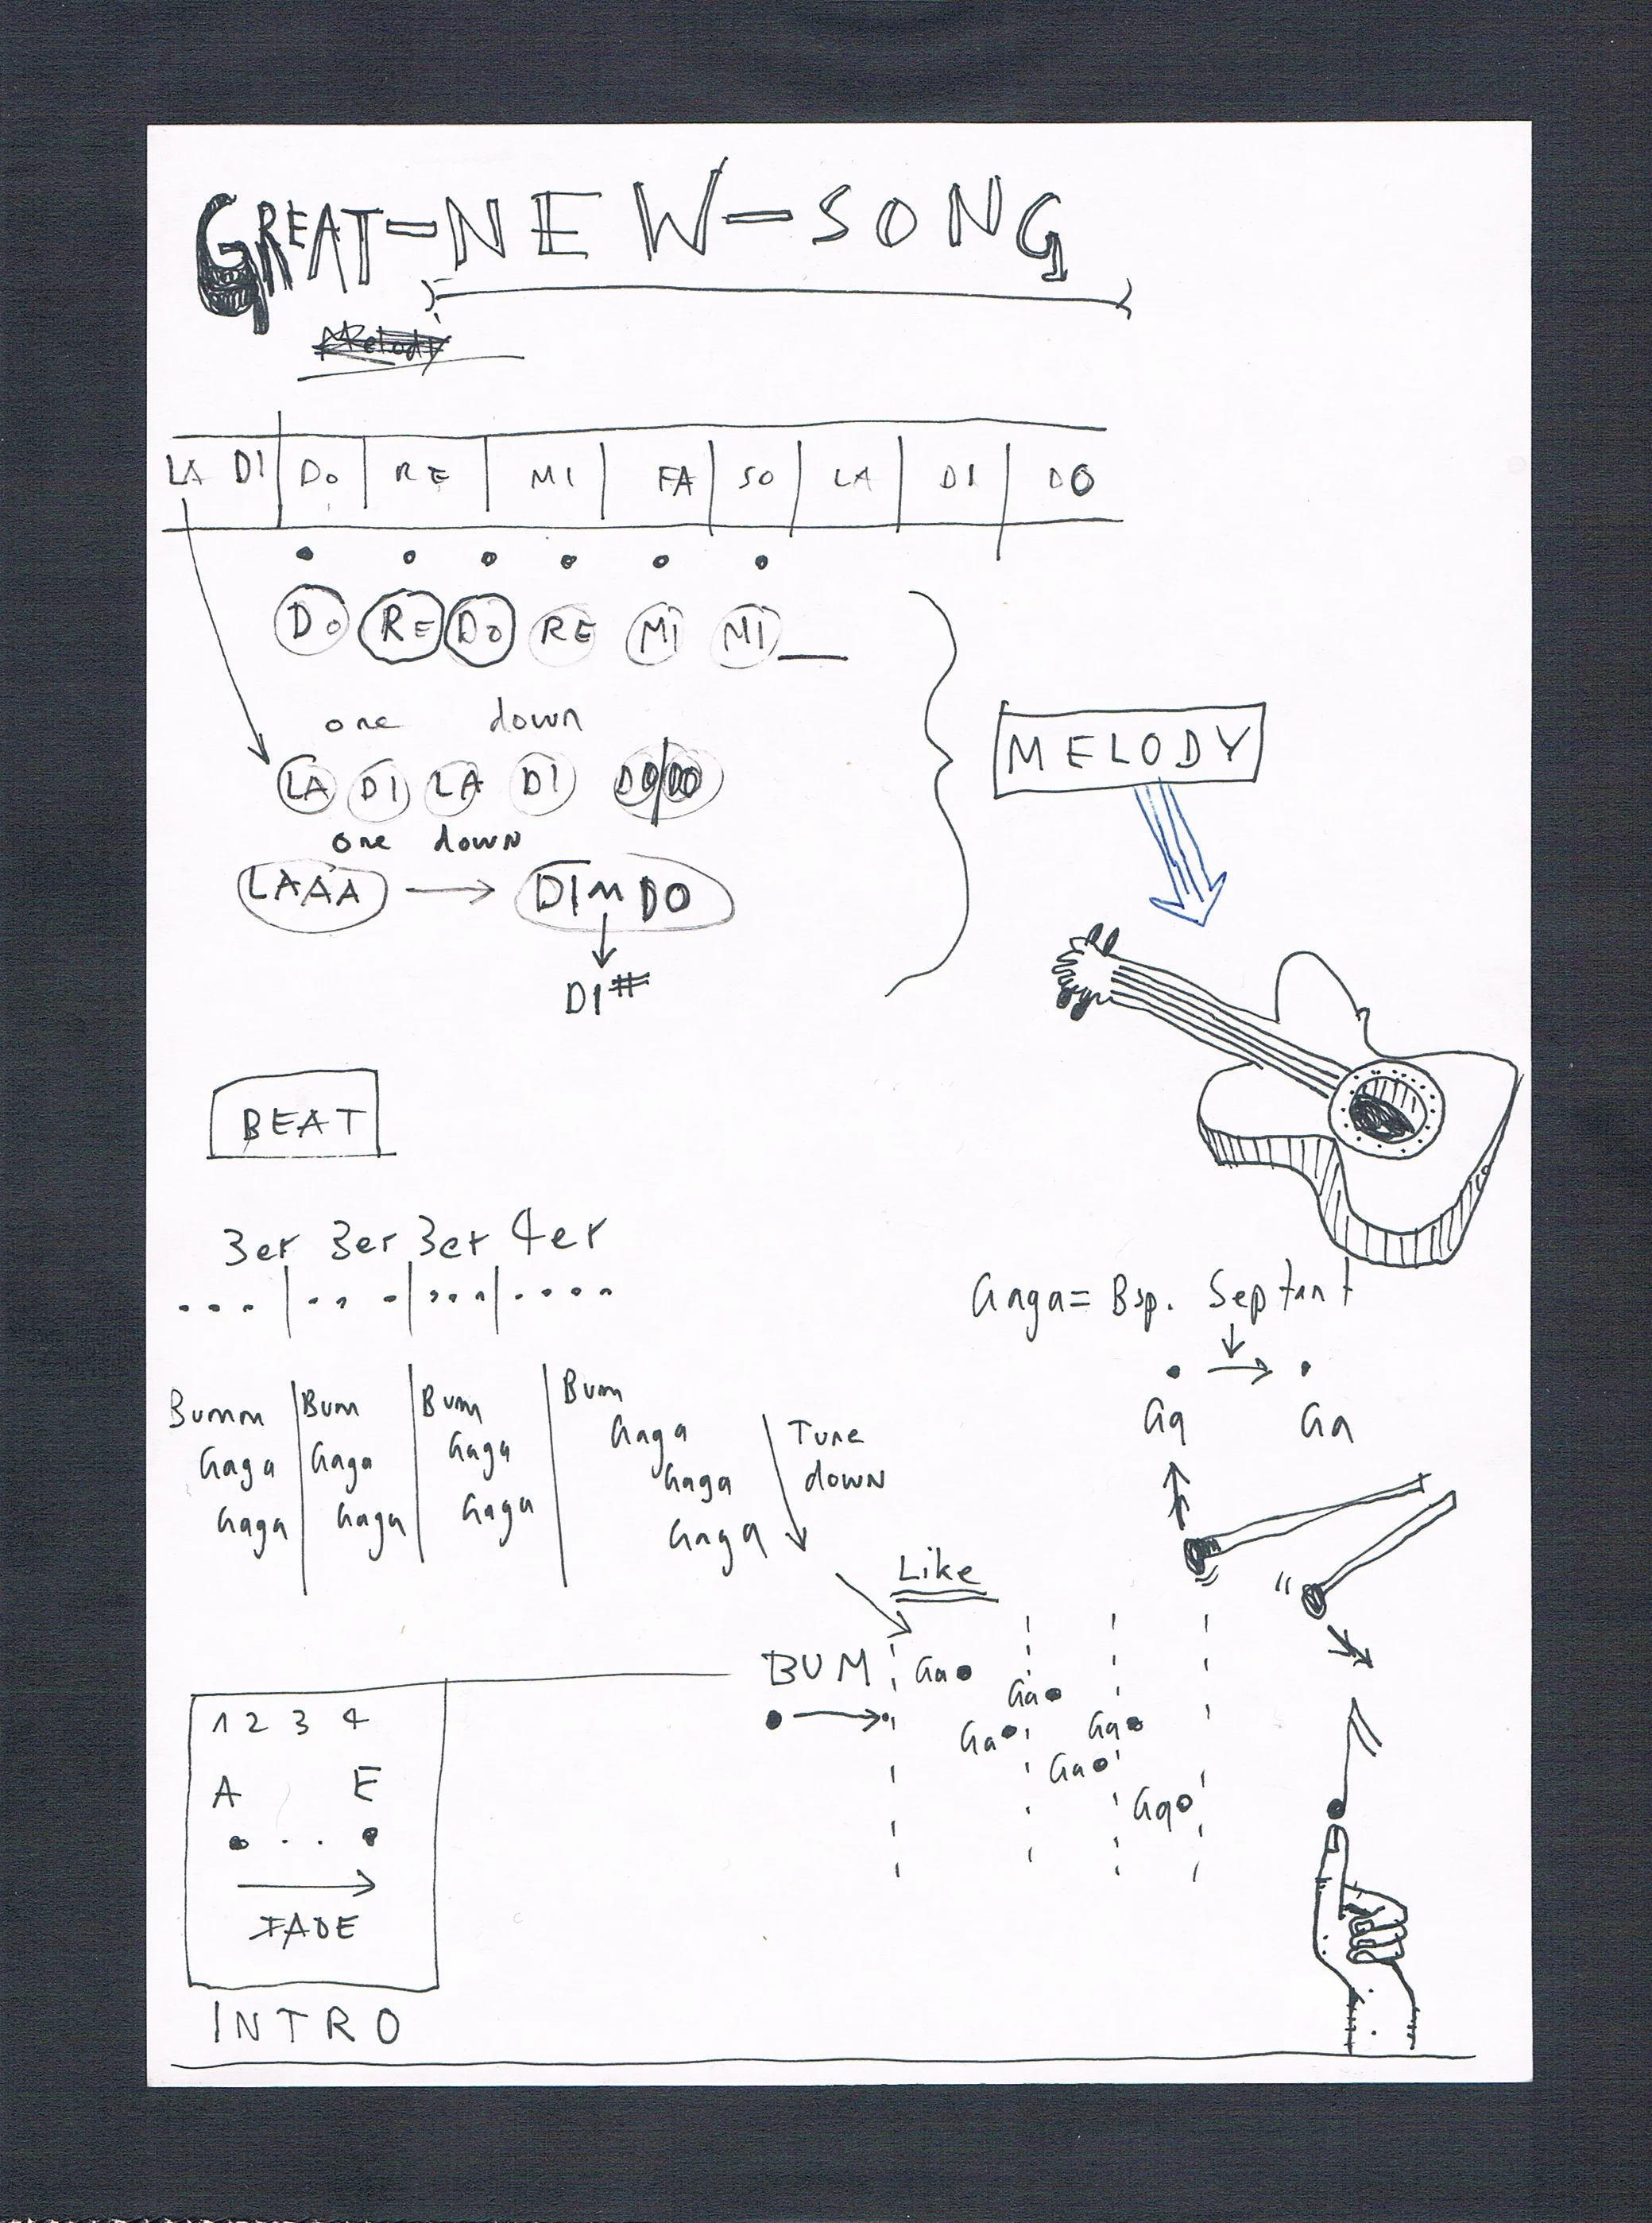 GREAT-NEW-SONG
Melody
LA DI DO RE MI FA SO LA DI DO
DO RE DO RE MI MI
one down
LA DI LA DI DO DO
one down
LAAA → DIMDO
DI#
MELODY
BEAT
3er 3er 3er 4er
Gaga = Bsp.
Ga Ga
Bumm Bum Bum Bum
Gaga Gaga Gaga Gaga
Gaga Gaga Gaga Gaga
Gaga
Tune
down
Like
BUM Ga
Ga
Ga Ga
Ga
Ga
1 2 3 4
A E
FADE
INTRO